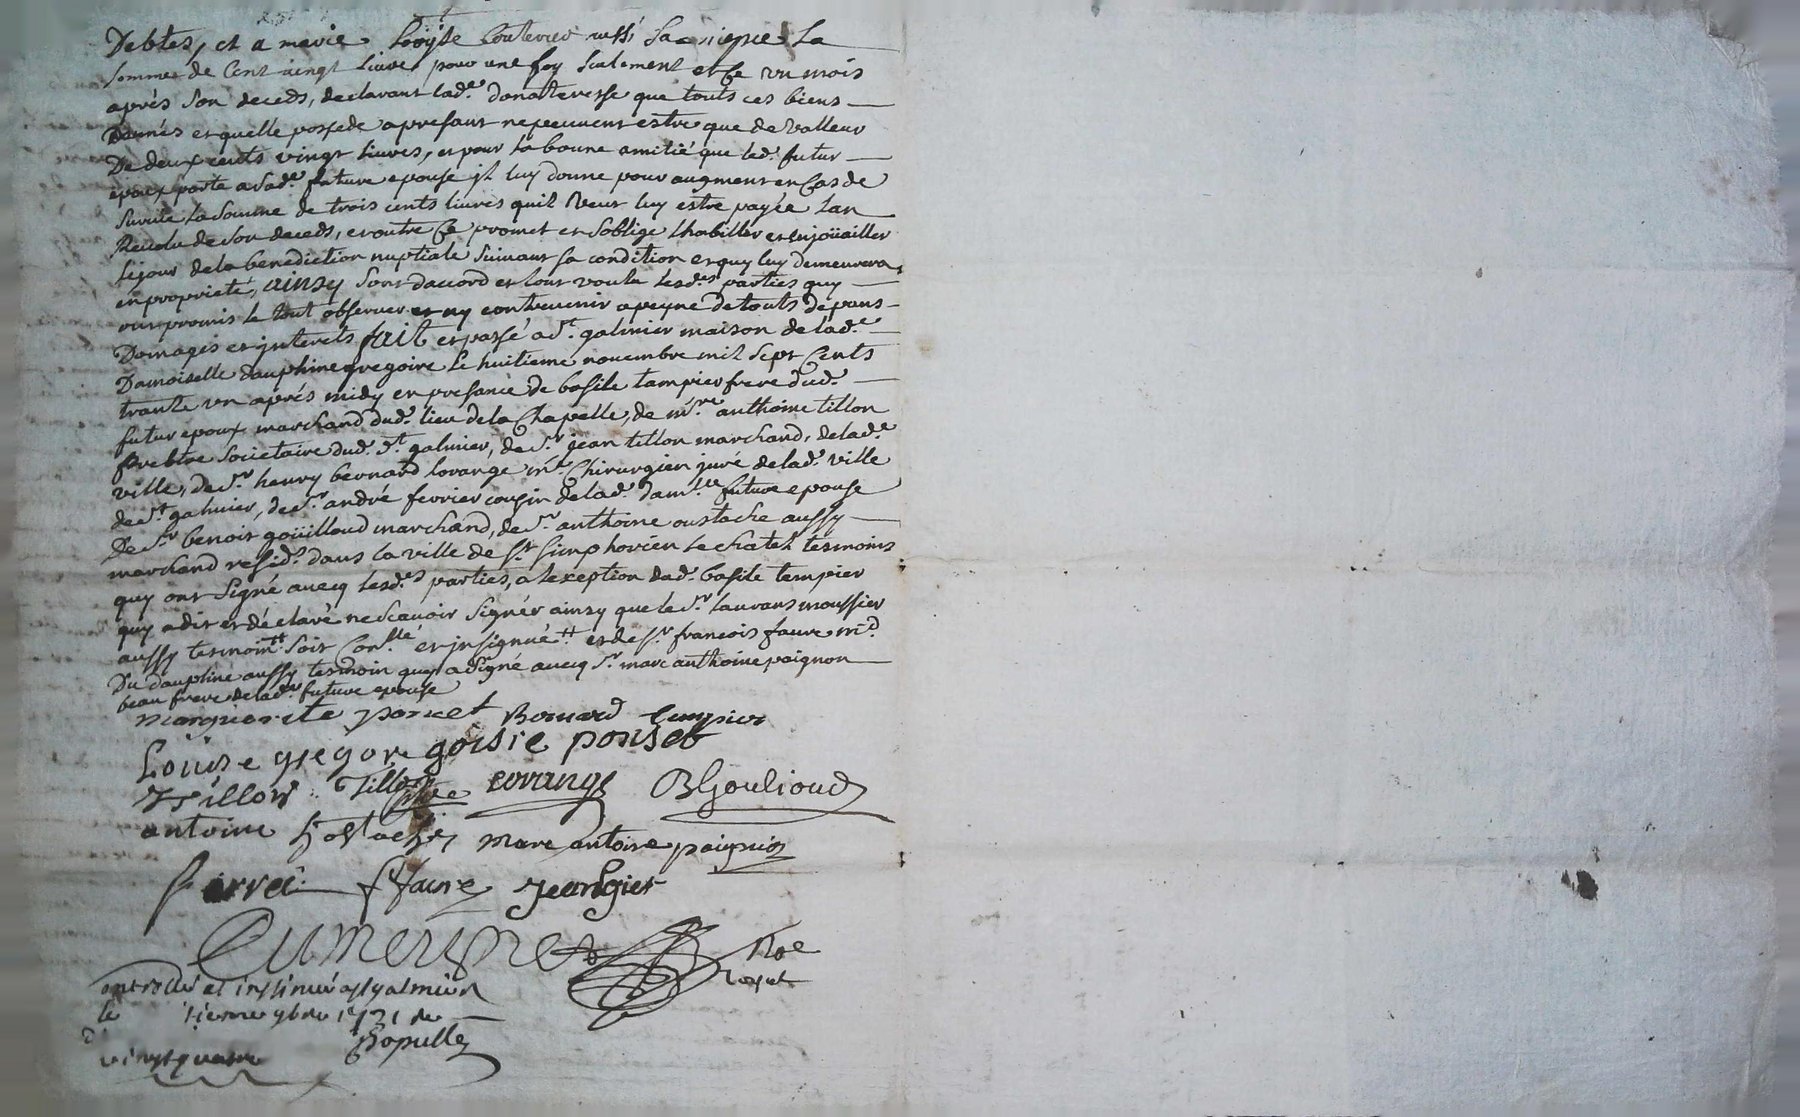 Debtes, et a marie Loüyse aussi sa niepce La
somme de Cent vingt Livres pour une foy seulement et Ce un mois
aprés son deceds, declarant lad.e donatteresse que touts ces biens
Donnés et quelle possede apresant ne peuvent estre que de Valleur
De deux cents vingt Livres, et pour la bonne amitié que led. futur
epoux porte a sad.e future epouse jl luy donne pour augment en Cas de
survie La somme de trois cents livres quil Veut luy estre payée Lan
Revolu de son deceds, et outre Ce promet et soblige Lhabiller et enjoüailler
Lejour de la benediction nuptiale suivant sa condition et quy luy demeurera
en proprieté, ainsy sont daccord et lont voulu lesd.es parties quy
ont promis le tout observer et ny contrevenir a peyne de touts depans
Domages et jnterets fait et passé a s.t galmier maison de lad.e
Damoiselle dauphine gregoire Le huitieme novembre mil sept Cents
trante un aprés midy en presance de basile tampier frere dud.
futur epoux marchand dud. lieu de la Chapelle, de m.re anthoine tillon
prebtre societaire dud. s.t galmier, de s.r jean tillon marchand, de lad.e
ville, de s.r henry bernard lorange m.e Chirurgien juré de lad. ville
de s.t galmier, de s.r andré fevrier cousin de lad. dam.lle future epouse
De s.r benoit goüilloud marchand, de s.r anthoine oustache aussy
marchand resid. dans la ville de s.t simphorien Le chatel tesmoins
quy ont signé avecq lesd.es parties, a lexeption dud. basile tempier
quy a dit et déclaré ne scavoir signer ainsy que le s.r laurans moussier
aussy tesmoin soit Con.llé et jnsignué et de s.r francois faure m.d
Du dauphiné aussy tesmoin quy a signé avecq s.r marc anthoine paignon
beau frere de lad. future epouse
marguerite ponset Bonnard tempier
Louise gregoire ponset
Tillon Tillon lorange BGoulioud
antoine hostache marc antoine paignon
fFaure
Not.e

et insinué a st galmier
le 9bre 1731

vingt quatre